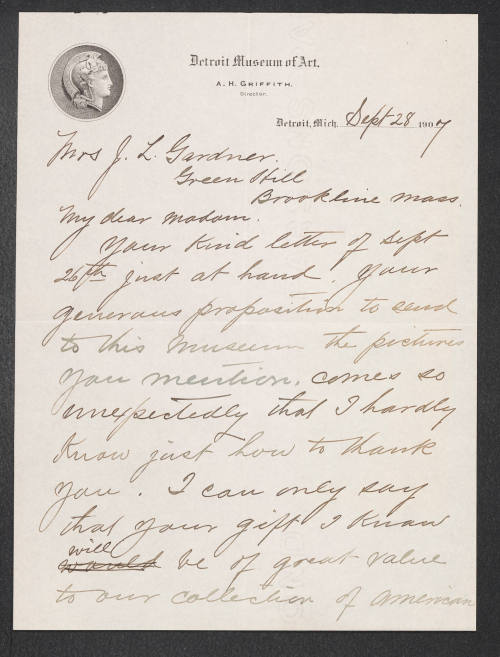 Detroit Museum of Art.
A. H. GRIFFITH,
Director.
Detroit, Mich. Sept 28 1907
Mrs J. L. Gardner.
Green Hill
Brookline Mass.
My dear Madam.
Your kind letter of Sept
26th just at hand. Your
generous proposition to send
to this museum the pictures
you mention, comes so
unexpectedly that I hardly
know just how to thank
you. I can only say
that your gift I know
will
~~would~~ be of great value
to our collection of American